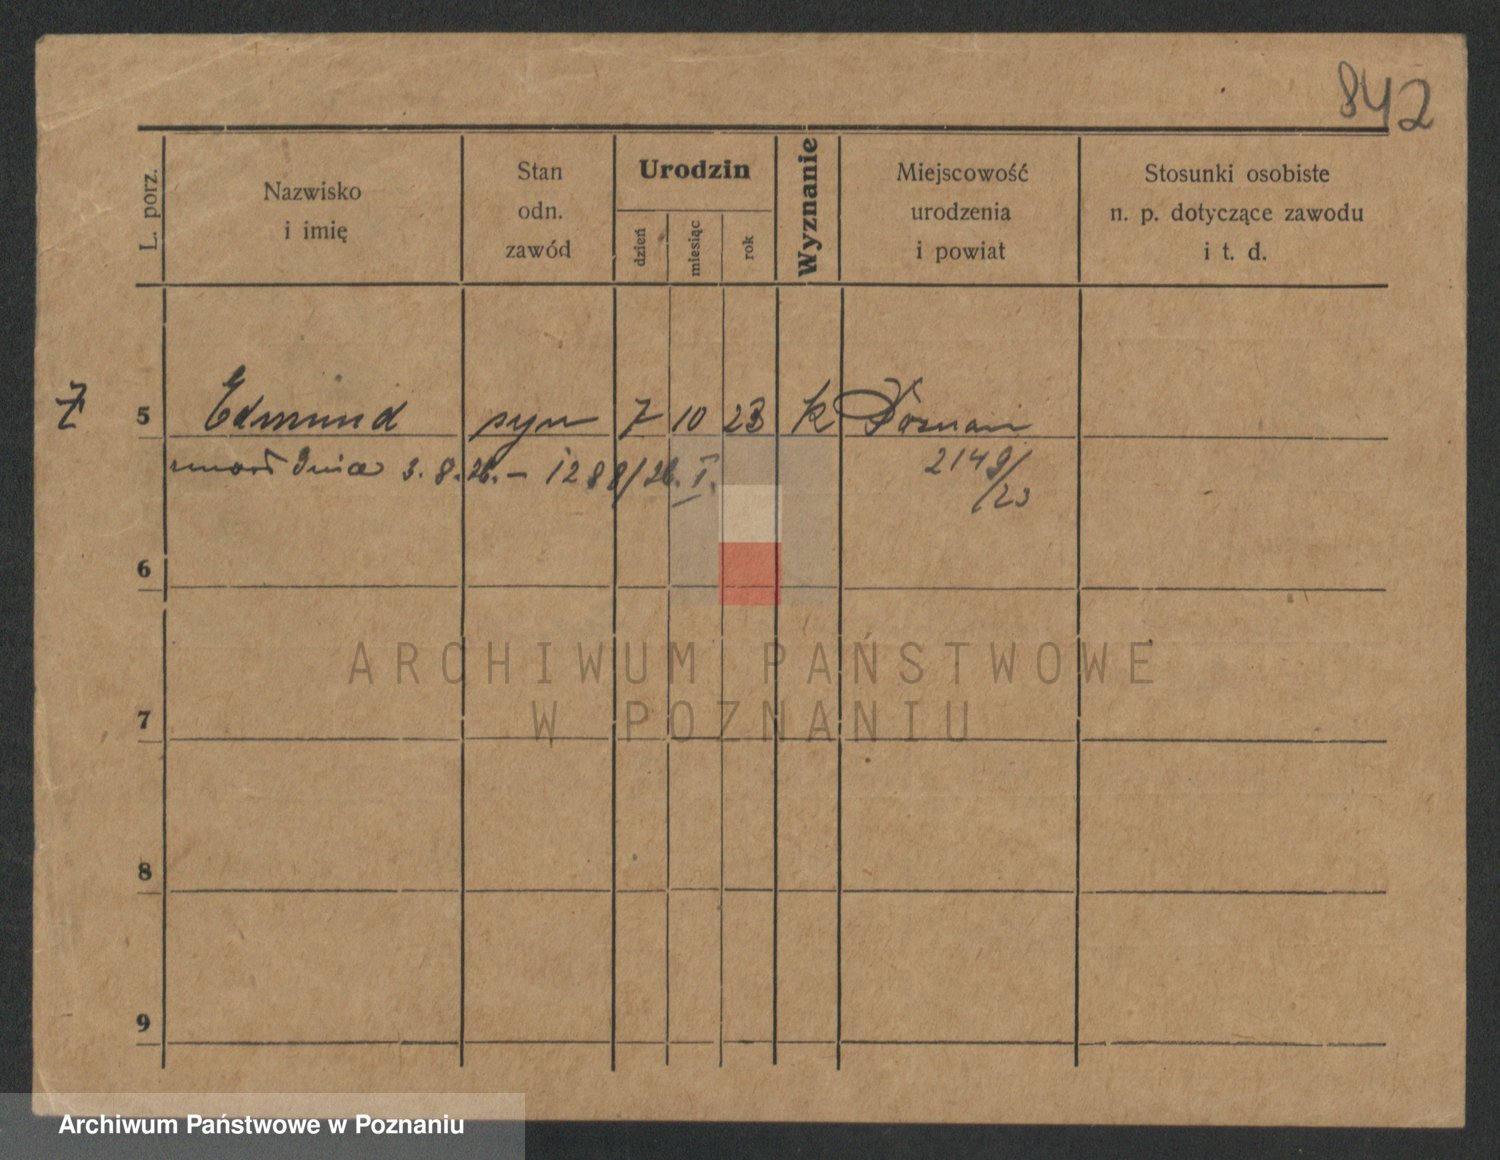 842
L. porz.
Nazwisko
i imię
Stan
odn.
zawód
Urodzin
dzień
miesiąc
rok
Wyznanie
Miejscowość
urodzenia
i powiat
Stosunki osobiste
n. p. dotyczące zawodu
i t. d.
Ż 5 Edmund syn 7 10 23 k Poznań
zmarł dnia 3.8.26. – 1288/26. I.
2149/23
6
7
8
9
ARCHIWUM PAŃSTWOWE
W POZNANIU
Archiwum Państwowe w Poznaniu